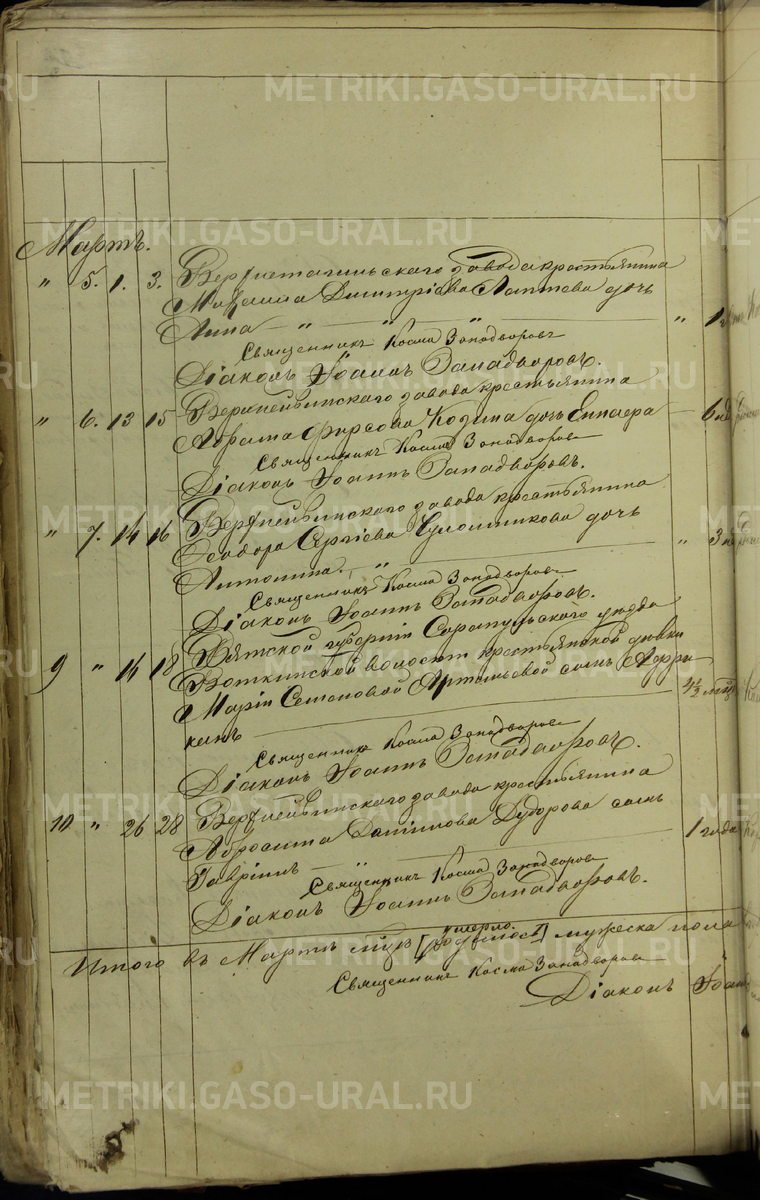 METRIKI.GASO-URAL.RU
Мартъ.
" 5. 1. 3. Верхнетагильскаго завода крестьянина
Михаила Димитріева Лаптева дочь
Анна — " — " — "
Священникъ Косма Западворовъ
Діаконъ Іоаннъ Западворовъ.
" 6. 13 15 Верхнейвинскаго завода крестьянина
Абрама Фирсова Кодина дочь — 6 нед
Священникъ Косма Западворовъ
Діаконъ Іоаннъ Западворовъ.
" 7. 14 16 Верхнейвинскаго завода крестьянина
Ѳеодора Сергіева дочь
Антонина. — " — " 3 нед
Священникъ Косма Западворовъ
Діаконъ Іоаннъ Западворовъ.
9 " 14 18 Вятской губерніи Сарапульскаго уѣзда
Воткинской волости крестьянской дѣвки
Маріи Семеновой Артемьевой сынъ Афри
канъ — 4½ мѣс
Священникъ Косма Западворовъ
Діаконъ Іоаннъ Западворовъ.
10 " 26 28 Верхнейвинскаго завода крестьянина
Дудорова сынъ
Гавріилъ — 1 года
Священникъ Косма Западворовъ
Діаконъ Іоаннъ Западворовъ.
умерло.
Итого въ Мартѣ мцѣ [родилось] мужеска пола
Священникъ Косма Западворовъ
Діаконъ Іоаннъ
METRIKI.GASO-URAL.RU